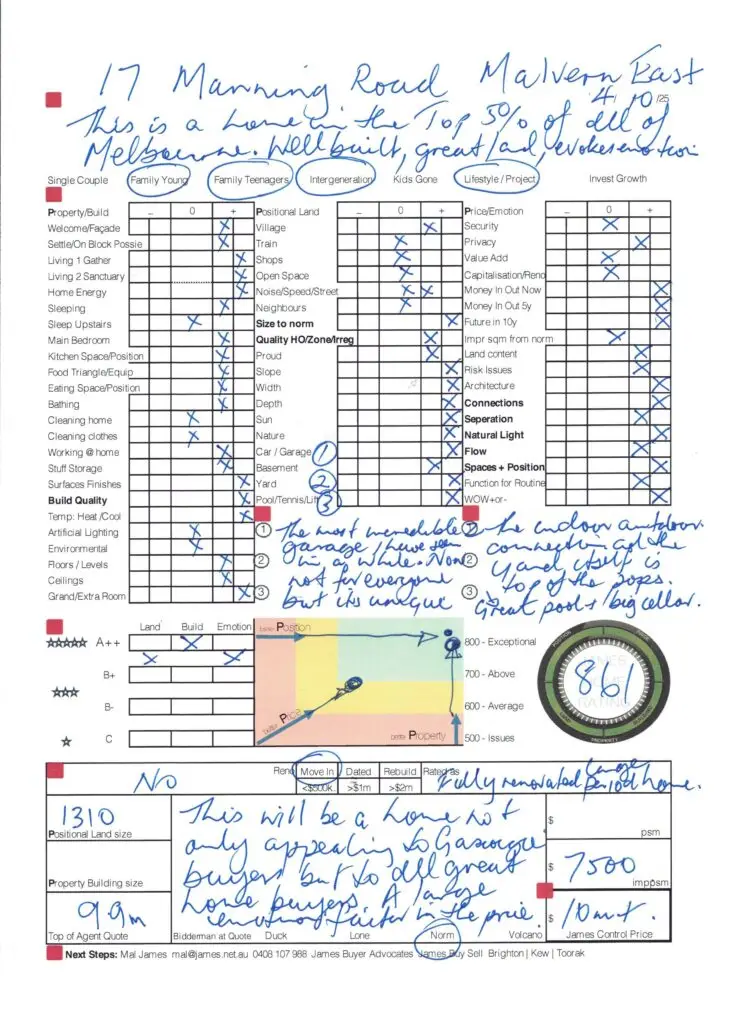 17 Manning Road Malvern East
4/10/25
This is a home in the Top 5% of all of
Melbourne. Well built, great land, evokes emotion
Single Couple Family Young Family Teenagers Intergeneration Kids Gone Lifestyle / Project Invest Growth
Property/Build - 0 + Positional Land - 0 + Price/Emotion - 0 +
Welcome/Façade Village Security
Settle/On Block Possie Train Privacy
Living 1 Gather Shops Value Add
Living 2 Sanctuary Open Space Capitalisation/Reno
Home Energy Noise/Speed/Street Money In Out Now
Sleeping Neighbours Money In Out 5y
Sleep Upstairs Size to norm Future in 10y
Main Bedroom Quality HO/Zone/Irreg Impr sqm from norm
Kitchen Space/Position Proud Land content
Food Triangle/Equip Slope Risk Issues
Eating Space/Position Width Architecture
Bathing Depth Connections
Cleaning home Sun Seperation
Cleaning clothes Nature Natural Light
Working @ home Car / Garage 1 Flow
Stuff Storage Basement Spaces + Position
Surfaces Finishes Yard 2 Function for Routine
Build Quality Pool/Tennis/Lift 3 WOW+or-
Temp: Heat /Cool
Artificial Lighting
Environmental
Floors / Levels
Ceilings
Grand/Extra Room
1 The most incredible
garage I have seen
2 in a while. Now
not for everyone
3 but its unique
1 The indoor outdoor
connection and the
2 yard itself is
top of the pops.
3 Great pool + big cellar.
Land Build Emotion
A++
B+
B-
C
better Position
better Price
better Property
800 - Exceptional
700 - Above
600 - Average
500 - Issues
POSITION
PRICE
PROPERTY
861
No
Reno Move In Dated Rebuild Rated as
<$500k >$1m >$2m
Fully renovated large period home.
1310
Positional Land size
Property Building size
9.9m
Top of Agent Quote
This will be a home not
only appealing to Gascoigne
buyers but to all great
home buyers. A large
emotional factor in the price.
Bidderman at Quote Duck Lone Norm Volcano
$ psm
$ 7500 imppsm
$ 10m+.
James Control Price
Next Steps: Mal James mal@james.net.au 0408 107 988 James Buyer Advocates James Buy Sell Brighton | Kew | Toorak